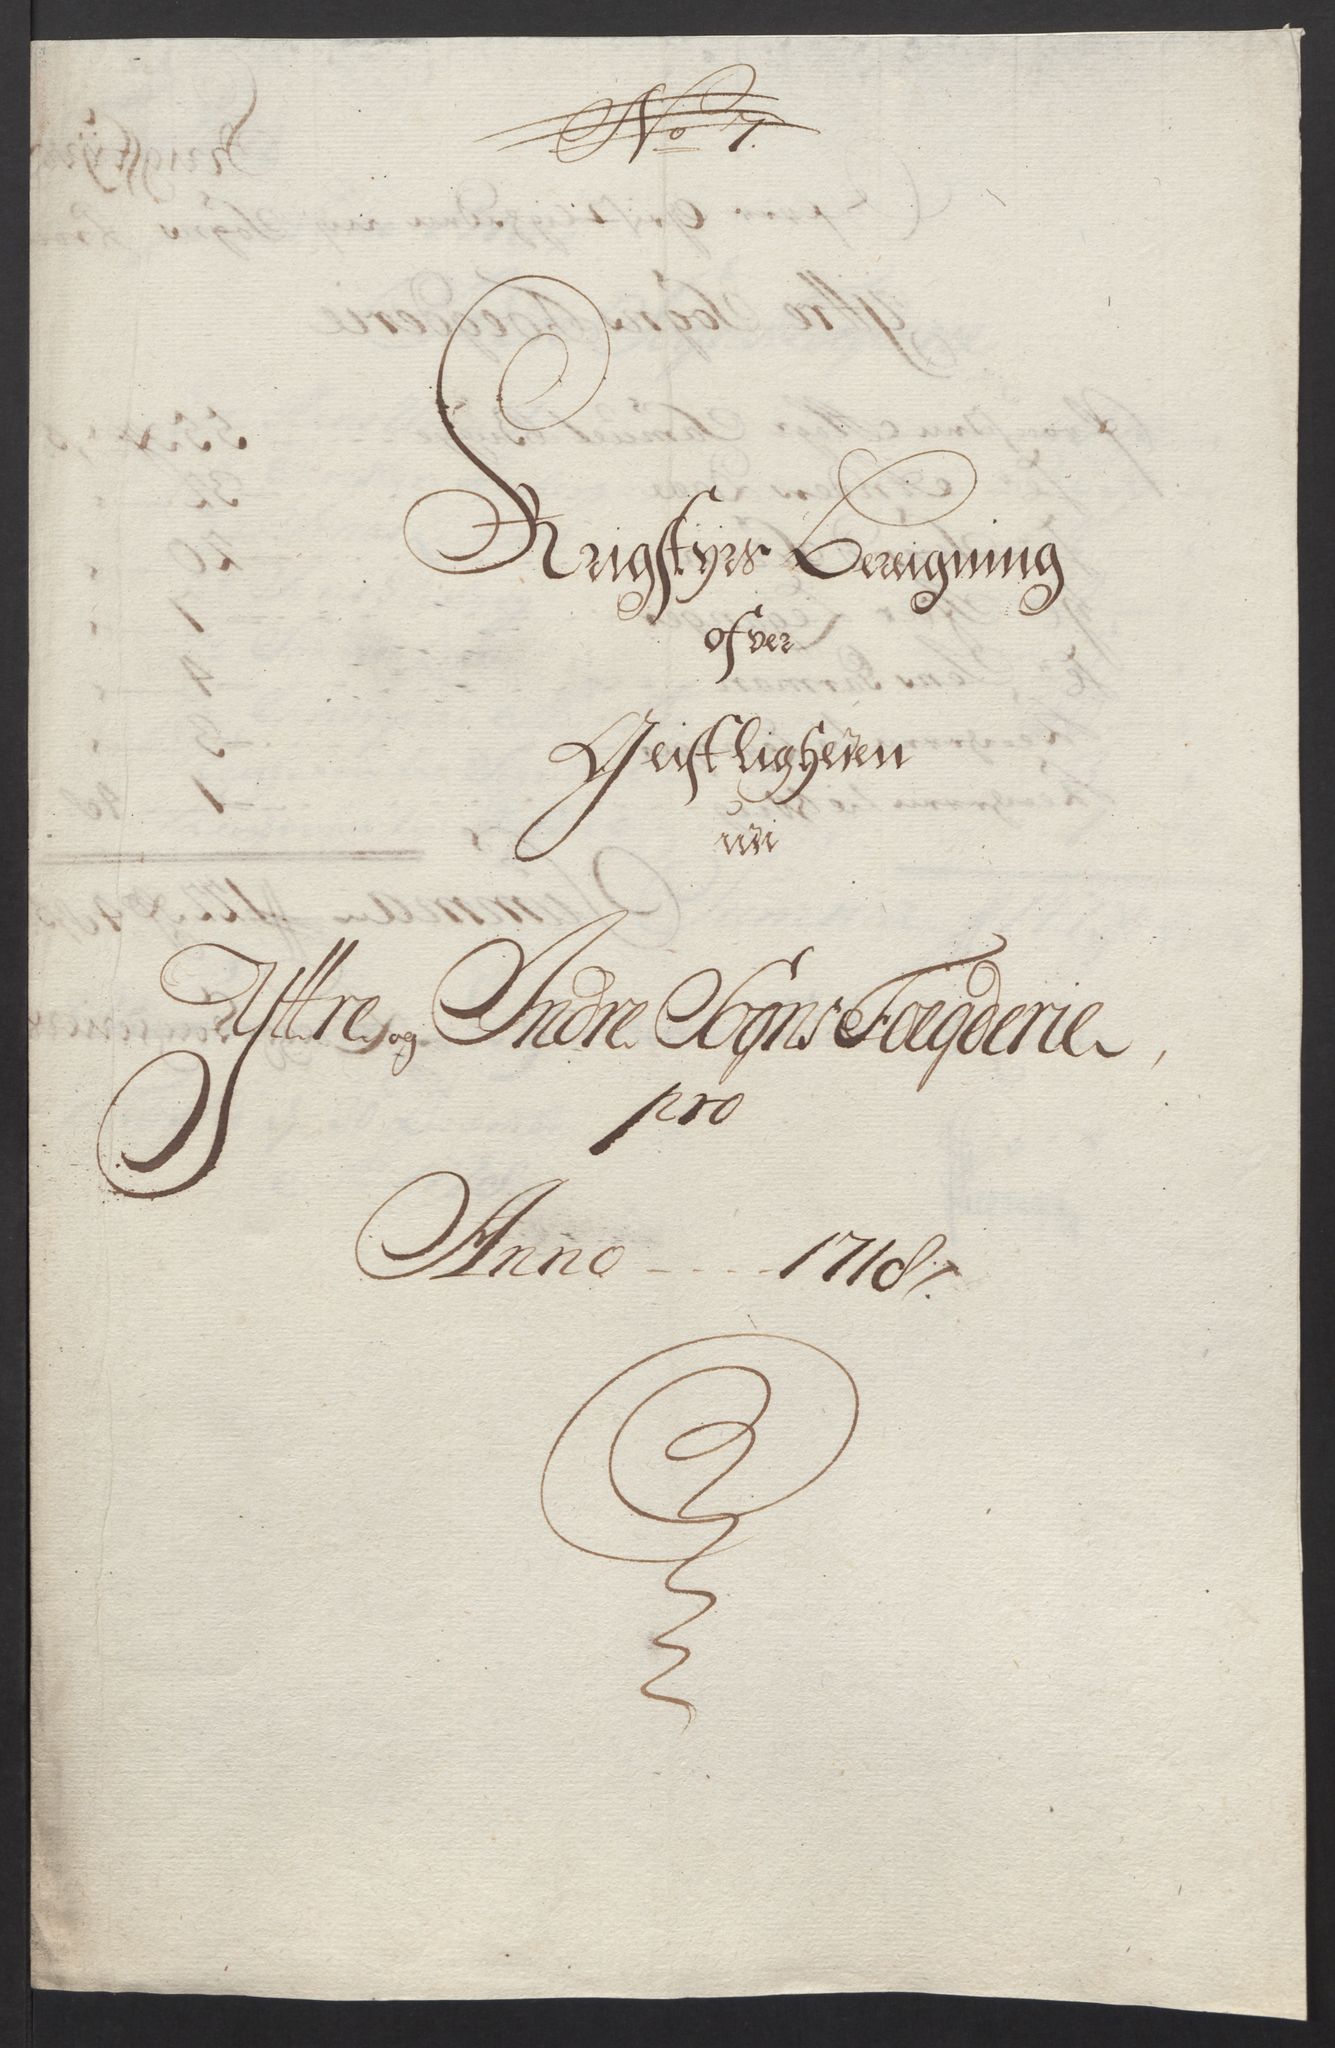 No 7.
Krigstyrs Bereigning
ofver
Geistligheden
udi
Yttre og Indre Sogns Foegderie,
pro
Anno - - - - 1718.